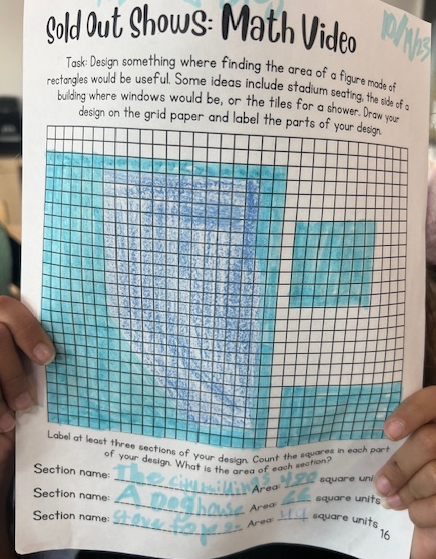 Sold Out Shows: Math Video
Task: Design something where finding the area of a figure made of
rectangles would be useful. Some ideas include stadium seating, the side of a
building where windows would be, or the tiles for a shower. Draw your
design on the grid paper and label the parts of your design.
Label at least three sections of your design. Count the squares in each part
of your design. What is the area of each section?
Section name: The city Area: square uni
Section name: A Doghouse Area: square units
Section name: Area: square units
16